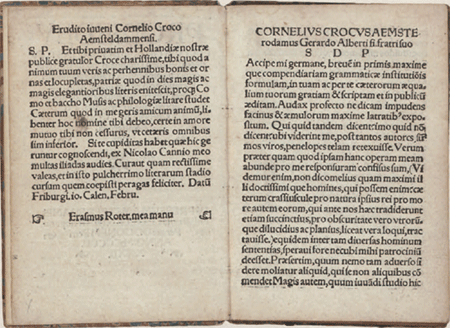 Erudito iuveni Cornelio Croco
Aemsteldammensi.
S. P. Et tibi priuatim et Hollandiæ nostræ
publicę gratulor Croce charissime, tibi quod a
nimum tuum veris ac perhennibus bonis et or
nas et locupletas, patriæ quod in dies magis ac
magis elegantioribus literis enitescit, procꝗ Co
mo et baccho Musis ac philologiæ litare studet
Cæterum quod in me geris amicum animū, li-
benter hoc nomine tibi debeo, certe in amore
mutuo tibi non cessurus, vt cæteris omnibus
sim inferior. Si te cupiditas habet quæ hic ge
runtur cognoscendi, ex Nicolao Cannio meo
multas iliadas audies. Curaut quam rectissime
valeas, et in isto pulcherrimo literarum stadio
cursam quem coepisti peragas feliciter. Datū
Friburgi. 10. Calen, Febru.
Erasmus Roter. mea manu
CORNELIVS CROCVS AEMSTE
rodamus Gerardo Alberti fi. fratri suo
S D P
Accipe mi germane, breuē in primis maxime
que compendiariam grammaticæ institutiōis
formulam, in tuam ac per te cæterorum æqua
lium tuorum gratiam & scriptam et in publicū
æditam. Audax profecto ne dicam impudens
facinus & æmulorum maxime latratibꝰ expo-
situm. Qui quid tandem dicent imo quid nō
dicent vbi viderint me, post tantos autores sū-
mos viros, penelopes telam retexuisse. Verum
præter quam quod ipsam hanc operam meam
abunde pro me responsuram confisus sum, (Vi
demur enim, non dicomelius quam maximi il
li doctissimi que homines, qui possem enim: cæ
terum crassiuscule pro natura ipsius rei pro mo
re autem eorum, qui ante nos hæc tradiderunt
etiam succinctius, pro obscuritate vero vtrorū-
que dilucidius ac planius, liceat vera loqui, trac
tauisse.) equidem inter tam diuersas hominum
sententias, speraui fore necubi mihi patrociniū
deesset. Præsertim, quum nemo tam aduerso sī
dere moliatur aliquid, qui se non aliquibus cō
mendet Magis autem, quum iuuādi studio hic